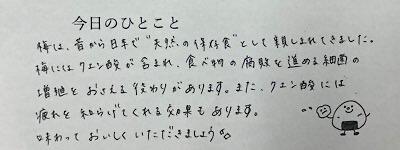 今日のひとこと
梅は、昔から日本で“天然の保存食”として親しまれてきました。
梅にはクエン酸が含まれ、食べ物の腐敗を進める細菌の
増殖をおさえる役わりがあります。また、クエン酸には
疲れを和らげてくれる効果もあります。
味わっておいしくいただきましょう。